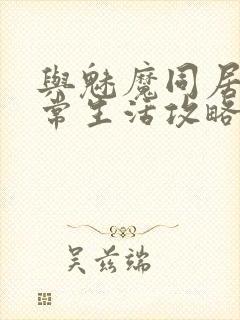 與魅魔同居
常生活攻略
吴兹端